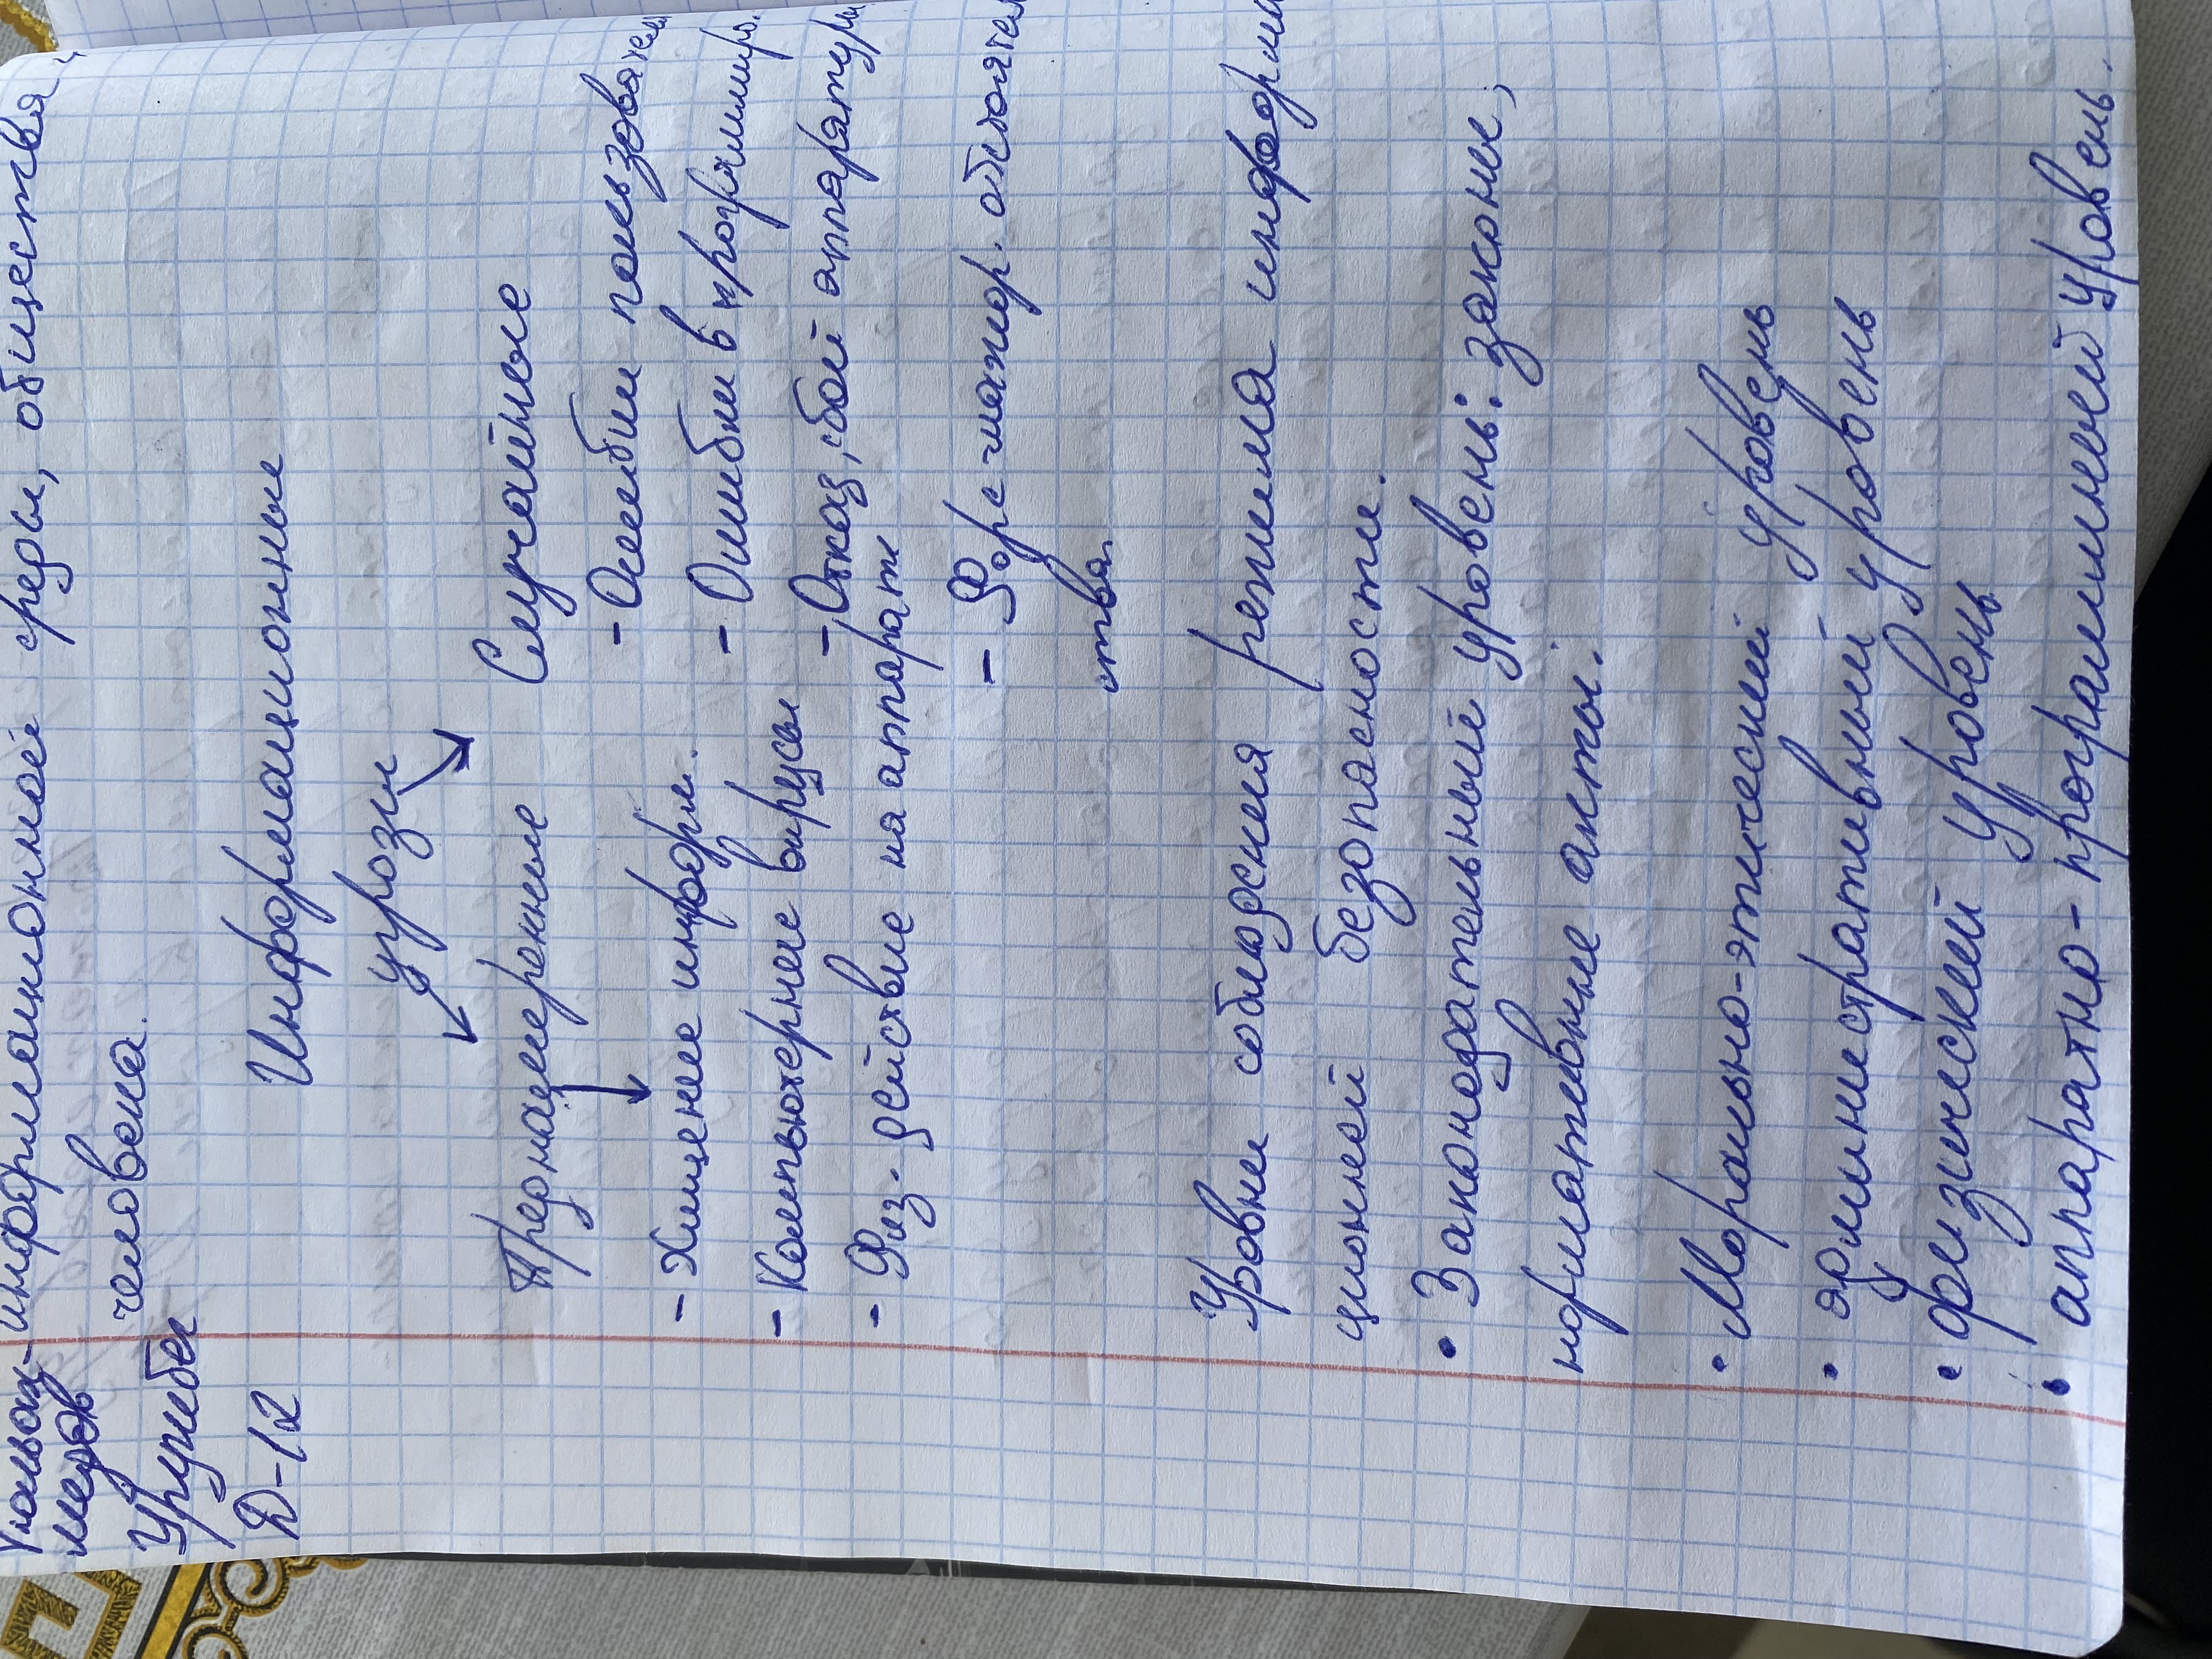 информационной среды, общества,
человека.
Урунбек
Д-12
Информационные
угрозы
Преднамеренные Случайные
- Хищение информ. - Ошибки пользовател
- Компьютерные вирусы - Ошибки в программир.
- Физ-действие на аппарат - Отказ, сбой аппаратуры
- Форс мажор. обстоятел
ства.
Уровни соблюдения режима информа
ционной безопасности.
• Законодательный уровень: законы,
нормативные акты.
• Морально-этический уровень
• административный уровень
• физический уровень
• аппаратно-программный уровень.